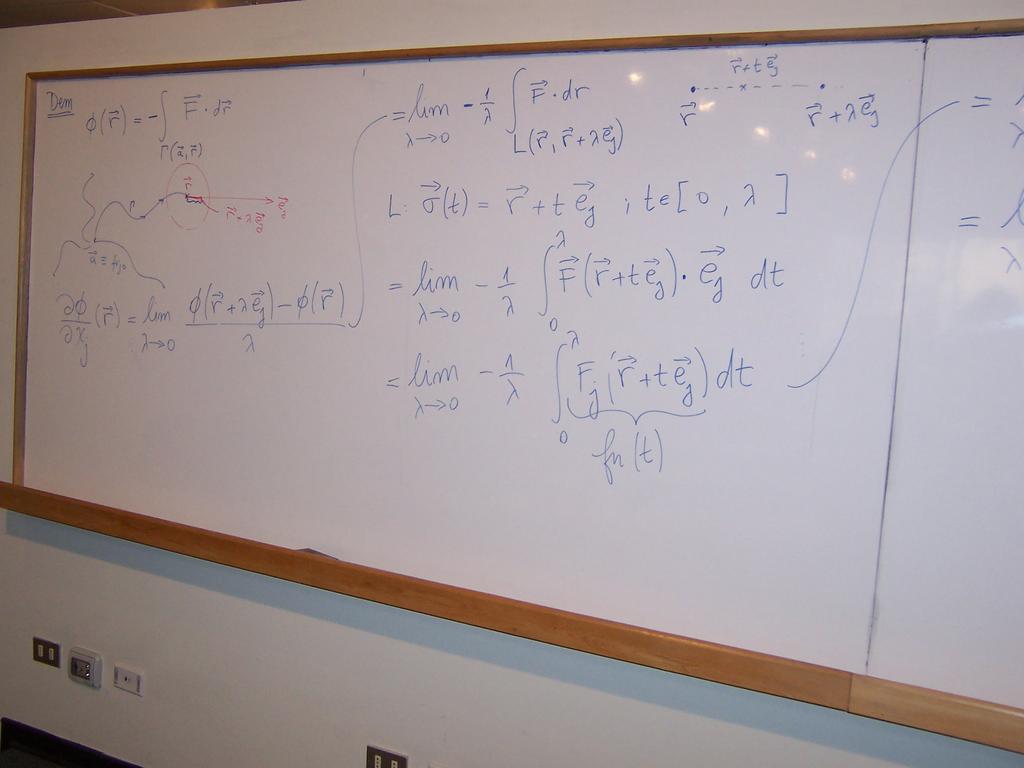 Dem
φ(r⃗) = -∫ F⃗ · dr⃗
Γ(a⃗, r⃗)
r⃗
r⃗ + λ e⃗j
a⃗ ≡ fijo
∂φ/∂xj (r⃗) = lim λ→0 (φ(r⃗ + λe⃗j) - φ(r⃗))/λ
= lim λ→0 - 1/λ ∫ F⃗ · dr
L(r⃗, r⃗ + λe⃗j)
r⃗ + t e⃗j
r⃗ r⃗ + λe⃗j
L: σ⃗(t) = r⃗ + t e⃗j ; t ∈ [0, λ]
= lim λ→0 - 1/λ ∫₀^λ F⃗(r⃗ + t e⃗j) · e⃗j dt
= lim λ→0 - 1/λ ∫₀^λ Fj(r⃗ + t e⃗j) dt
fn(t)
=
=